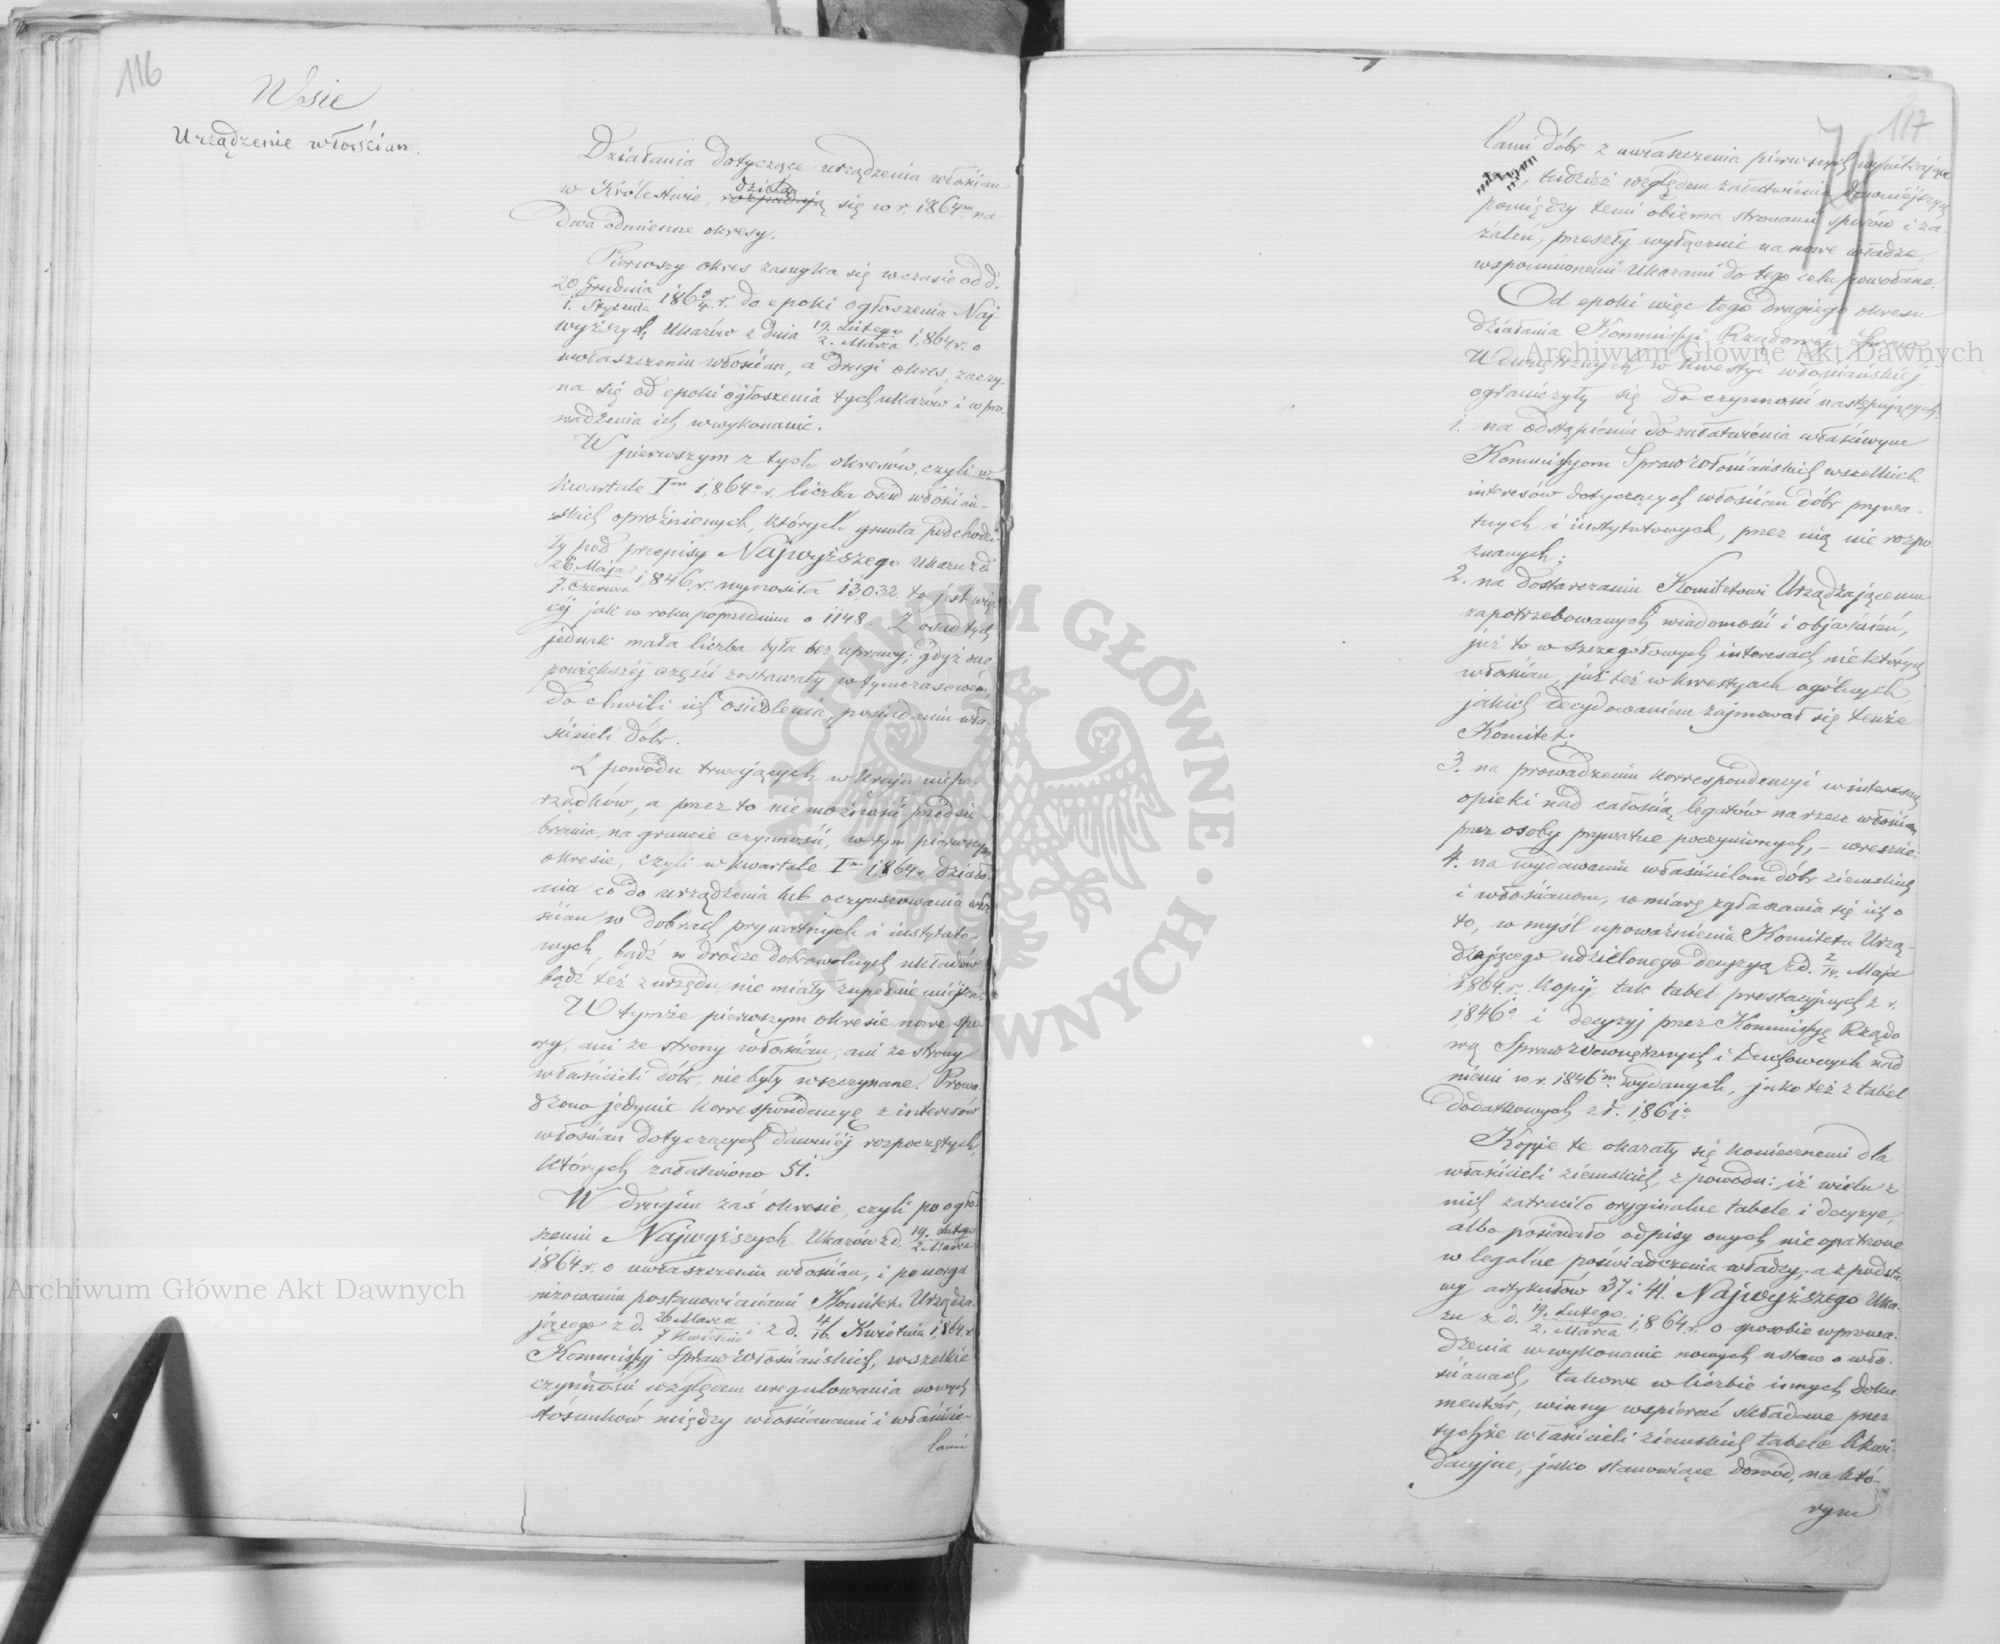 116
Wsie
Urządzenie włościan.
Działania dotyczące urządzenia włościan
w Królestwie, rozpadają dzielą się w r. 1864m na
dwa odmienne okresy.
Pierwszy okres zamyka się w czasie od d.
20 Grudnia / 1. Stycznia 186 3/4 r. do epoki ogłoszenia Naj-
wyższych Ukazów z dnia 19. Lutego / 2. Marca 1864 r. o
uwłaszczeniu włościan, a drugi okres, zaczy-
na się od epoki ogłoszenia tych ukazów i wpro-
wadzenia ich w wykonanie.
W pierwszym z tych okresów, czyli w
kwartale Im 1864o r. liczba osad włościań-
skich opróżnionych, których grunta podchodzi-
ły pod przepisy Najwyższego Ukazu z d.
26 Maja / 7. Czerwca 1846 r. wynosiła 13032. to jest wię-
cej jak w roku poprzednim o 1148. Z osad tych
jednak mała liczba była bez uprawy; gdyż one
powiększej części zostawały w tymczasowém,
do chwili ich osiedlenia, posiadaniu wła-
ścicieli dóbr.
Z powodu trwających w kraju niepo-
rządków, a przez to niemożności przedsię-
brania na gruncie czynności, w tym pierwszym
okresie, czyli w kwartale Im 1864 r. działa-
nia co do urządzenia lub oczynszowania wło-
ścian w dobrach prywatnych i instytuto-
wych, bądź w drodze dobrowolnych układów
bądź też z urzędu, nie miały zupełnie miejsca.
W tymże pierwszym okresie nowe spo-
ry, ani ze strony włościan, ani ze strony
właścicieli dóbr, nie były wszczynane. Prowa-
dzono jedynie korrespondencyę z interesów
włościan dotyczących dawniéj rozpoczętych,
których załatwiono 51.
W drugim zaś okresie, czyli po ogło-
szeniu Najwyższych Ukazów z d. 19. Lutego / 2. Marca
1864 r. o uwłaszczeniu włościan, i po uorga-
nizowaniu postanowieniami Komitetu Urządza-
jącego z d. 26 Marca / 7 Kwietnia i z d. 4/16. Kwietnia 1864 r.
Kommissyj Spraw Włościańskich, wszelkie
czynności względem uregulowania nowych
stosunków między włościanami i właścicie-
lami
117
lami dóbr z uwłaszczenia pierwszych wynikające
tudzież względem załatwienia dawniéjszych
pomiędzy temi obiema stronami sporów i za-
żaleń, przeszły wyłącznie na nowe władze,
wspomnionemi Ukazami do tego celu powołane.
Od epoki więc tego drugiego okresu
działania Kommissyi Rządowéj Spraw
Wewnętrznych w kwestyi włościańskiéj,
ograniczyły się do czynności następujących:
1. na odstąpieniu do załatwienia właściwym
Kommissyom Spraw Włościańskich wszelkich
interesów dotyczących włościan dóbr prywa-
tnych i instytutowych, przez nią nie rozpo-
znanych;
2. na dostarczaniu Komitetowi Urządzającemu
zapotrzebowanych wiadomości i objaśnień,
już to w szczegółowych interesach niektórych
włościan, już też w kwestyach ogólnych
jakich decydowaniem zajmował się tenże
Komitet;
3. na prowadzeniu korrespondencyi w interesach
opieki nad całością legatów na rzecz włościan
przez osoby prywatne poczynionych, – wreszcie:
4. na wydawaniu właścicielom dóbr ziemskich
i włościanom, w miarę zgłaszania się ich o
to, w myśl upoważnienia Komitetu Urzą-
dzającego udzielonego decyzyą z d. 2/14. Maja
1864 r. kopij, tak tabel prestacyjnych z r.
1846o i decyzyj przez Kommissyę Rządo-
wą Spraw Wewnętrznych i Duchownych nad
niemi w r. 1846m wydanych, jako też z tabel
dodatkowych z r. 1861o
Kopje te okazały się koniecznemi dla
właścicieli ziemskich, z powodu: iż wielu z
nich zatraciło oryginalne tabele i decyzye,
albo posiadało odpisy onych nie opatrzone
w legalne poświadczenia władzy, a z podsta-
wy artykułów 37 i 41. Najwyższego Uka-
zu z d. 19. Lutego / 2. Marca 1864 r. o sposobie wprowa-
dzenia w wykonanie nowych ustaw o wło-
ścianach, takowe w liczbie innych doku-
mentów, winny wspierać składane przez
tychże właścicieli ziemskich tabele likwi-
dacyjne, jako stanowiące dowód, na któ-
rym
Archiwum Główne Akt Dawnych
Archiwum Główne Akt Dawnych
ARCHIWUM GŁÓWNE AKT DAWNYCH